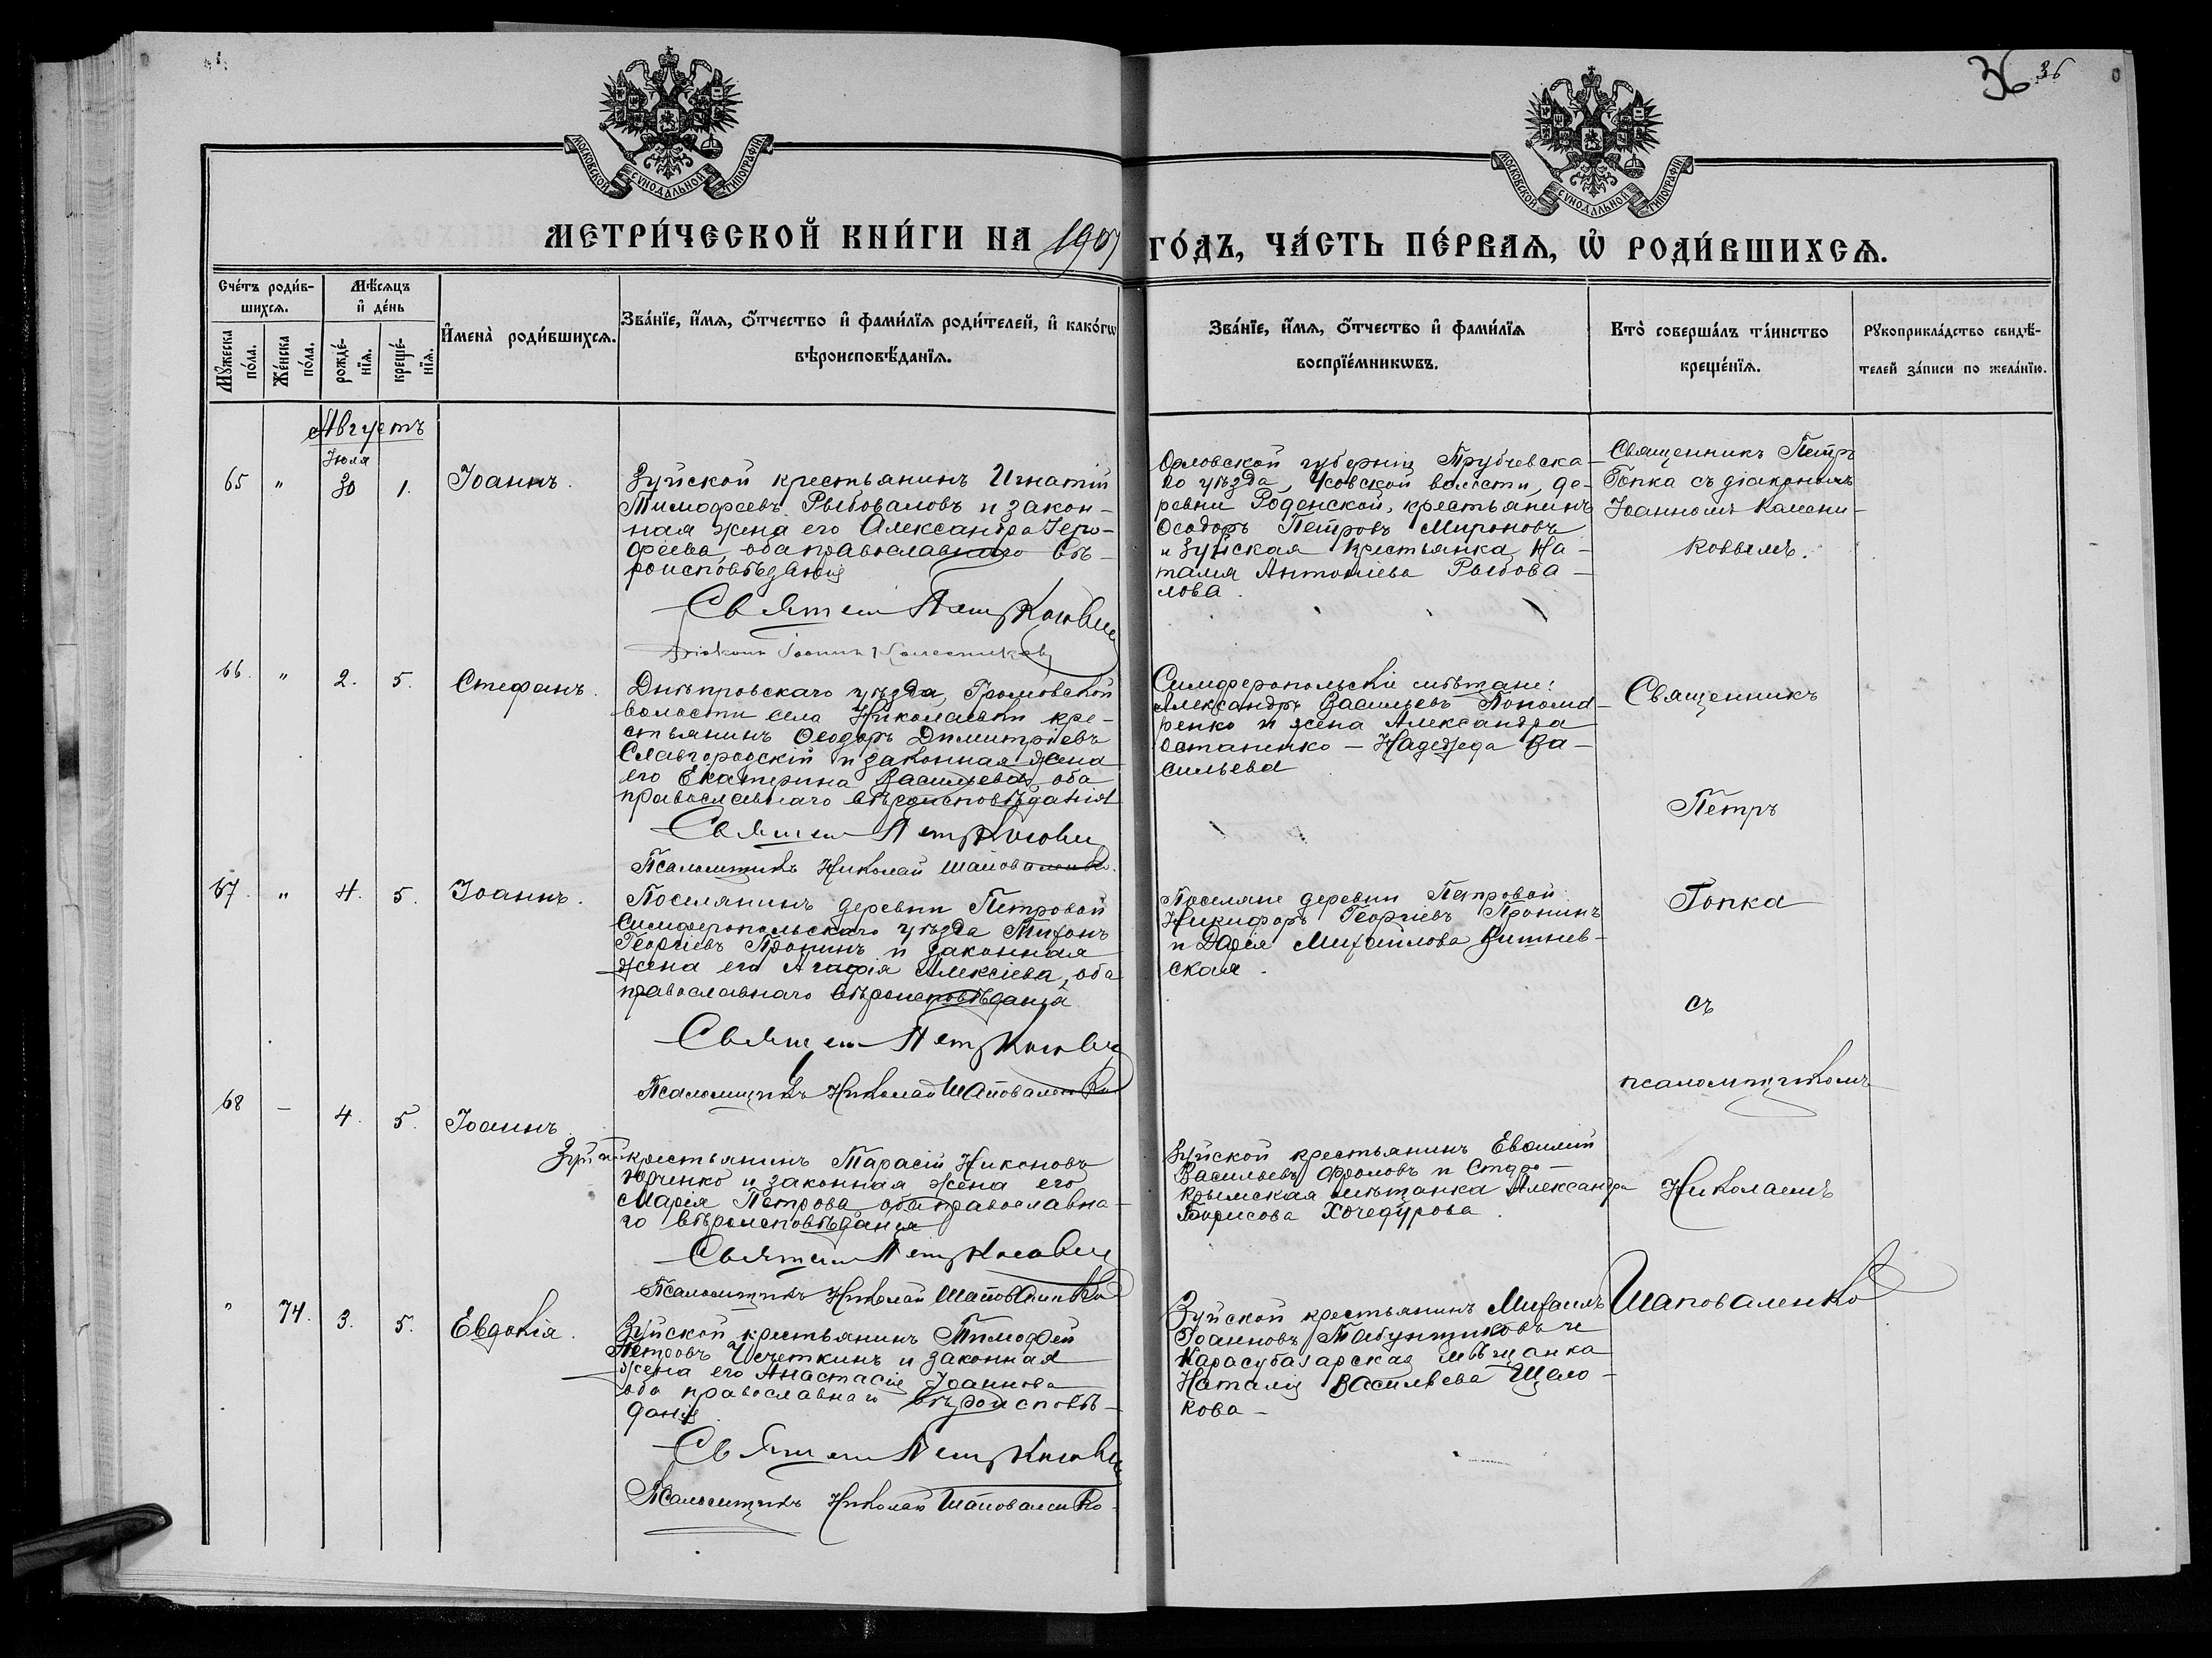 36 36
МОСКОВСКОЙ СѴНОДАЛЬНОЙ ТИПОГРАФІИ
МОСКОВСКОЙ СѴНОДАЛЬНОЙ ТИПОГРАФІИ
МЕТРИ́ЧЕСКОЙ КНИ́ГИ НА 1907 ГО́ДЪ, ЧА́СТЬ ПЕ́РВАЯ, Ѡ҆ РОДИ́ВШИХСѦ.
Сче́тъ роди́в-
шихсѧ.
Мꙋ́жеска по́ла.
Же́нска по́ла.
Мѣ́сѧцъ
и҆ де́нь
рожде́-
нїѧ.
креще́-
нїѧ.
И҆мена̀ роди́вшихсѧ.
Зва́нїе, и҆́мѧ, ѻ҆́тчество и҆ фами́лїѧ роди́телей, и҆ како́гѡ
вѣроисповѣ́данїѧ.
Зва́нїе, и҆́мѧ, ѻ҆́тчество и҆ фами́лїѧ
воспрїе́мникѡвъ.
Кто̀ соверша́лъ та́инство
креще́нїѧ.
Рꙋкоприкла́дство свидѣ́-
телей за́писи по жела́нїю.
Августъ
Іюля
65 " 30 1. Іоаннъ.
Зуйской крестьянинъ Игнатій
Тимофеевъ Рыбоваловъ и закон-
ная жена его Александра Іеро-
феева, оба православнаго вѣ-
роисповѣданія
Орловской губерніи Трубчевска-
го уѣзда, Усовской волости, де-
ревни Роденской, крестьянинъ
Ѳеодоръ Петровъ Мироновъ
и Зуйская крестьянка На-
талія Антоніева Рыбова-
лова.
Священникъ Петръ
Гопка съ діакономъ
Іоанномъ
66. " 2. 5. Стефанъ.
Днѣпровскаго уѣзда, Громовской
волости села Николаевки кре-
стьянинъ Ѳеодоръ Димитріевъ
Славгородскій и законная жена
его Екатерина Васильева, оба
православнаго вѣроисповѣданія
Псаломщикъ Николай Шаповаленко.
Симферопольскіе мѣщане:
Александръ Васильевъ Понома-
ренко и жена Александра
Остапенко — Надежда Ва-
сильева
Священникъ
Петръ
67. " 4. 5. Іоаннъ.
Поселянинъ деревни Петровой
Симферопольскаго уѣзда Тихонъ
Георгіевъ Пронинъ и законная
жена его Агафія Алексіева, оба
православнаго вѣроисповѣданія
Псаломщикъ Николай Шаповаленко
Поселяне деревни Петровой
Никифоръ Георгіевъ Пронинъ
и Дарія Михайлова Вишнев-
ская.
Гопка
съ
псаломщикомъ
68 — 4. 5. Іоаннъ
крестьянинъ Тарасій Никоновъ
Юрченко и законная жена его
Марія Петрова, оба православна-
го вѣроисповѣданія
Псаломщикъ Николай Шаповаленко
Зуйской крестьянинъ
Васильевъ Фроловъ и Старо-
крымская мѣщанка Александра
Борисова
Николаемъ
" 74. 3. 5. Евдокія.
Зуйской крестьянинъ Тимофей
Петровъ и законная
жена его Анастасія Іоаннова
оба православнаго вѣроисповѣ-
данія
Псаломщикъ Николай Шаповаленко
Зуйской крестьянинъ Михаилъ
Іоанновъ Табунщиковъ и
Карасубазарская мѣщанка
Наталія Васильева
кова —
Шаповаленко